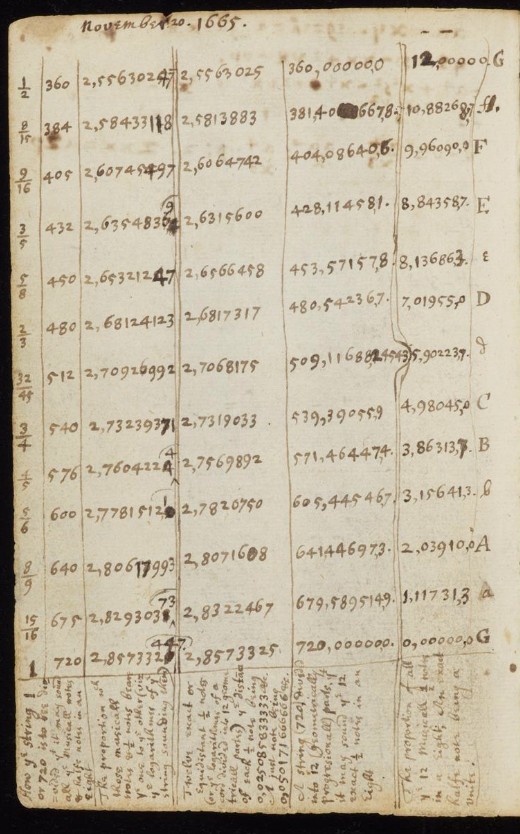 November 20. 1665.
1/2 360 2,55630247 2,5563025 360,000000 12,00000 G
8/15 384 2,58433118 2,5813883 381,40 6678. 10,88268
9/16 405 2,60745497 2,6064742 404,086406. 9,96090,0 F
3/5 432 2,635483 2,6315600 428,114581. 8,843587. E
5/8 450 2,65321247 2,6566458 453,571578. 8,136863. ε
2/3 480 2,68124123 2,6817317 480,542367. 7,01955,0 D
32/45 512 2,70926992 2,7068175 509,116882 5,902237.
3/4 540 2,73239371 2,7319033. 539,390559 4,98045,0 C
4/5 576 2,7604224 2,7569892 571,464474. 3,86313,7. B
5/6 600 2,7781512 2,7820750 605,445467. 3,15641,3. b
8/9 640 2,80617993 2,8071608 641446973. 2,03910,0 A
15/16 675 2,829303 2,8322467 679,5895149. 1,11731,3 a
1 720 2,857332 2,8573325. 720,000000. 0,00000,0 G
How yᵉ string 1
or 720 is to bee di-
vided yᵗ it may sound
all yᵉ musicall notes
& halfe notes in an
Eight
The proportion wᶜʰ
those musicall
notes & ½ notes being
string sounding them
Twelve exact or
Equidistant ½ notes
of each ½ note being
0,02508583333 &c.
0,050171666666 &c.
A string (720) divided
into 12 (geometrically
progressionall) parts, yᵗ
it may sound yᵉ 12
exact ½ notes in an
Eight.
The proportion of all
yᵉ 12 Musicall ½ notes
in an eight. An exact
halfe note being a
Unite.